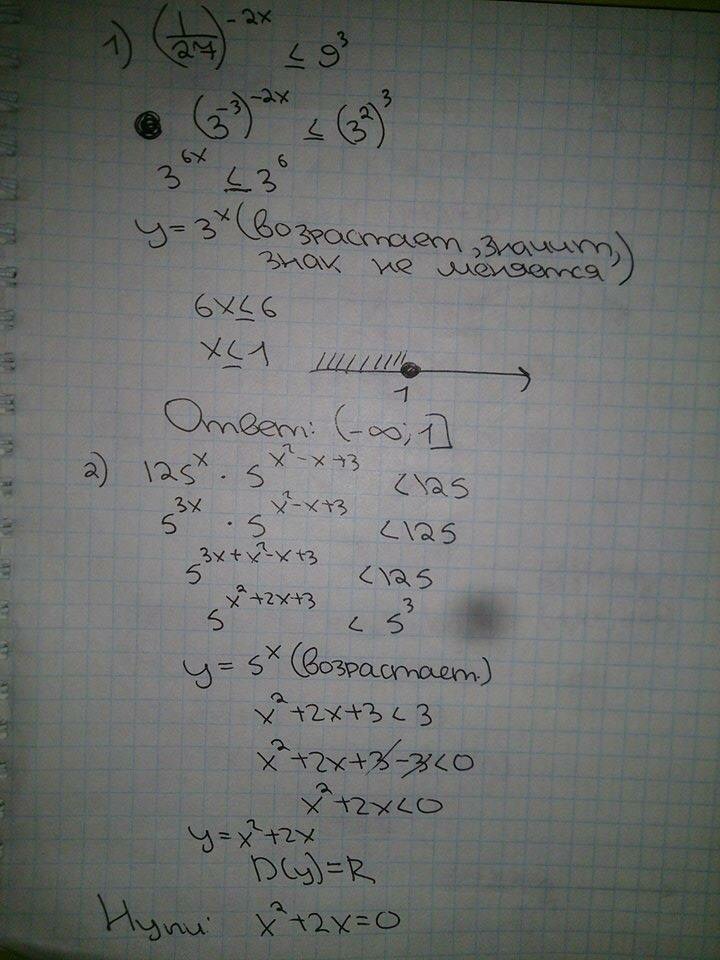 1) (1/27)^(-2x) ≤ 9^3
(3^(-3))^(-2x) ≤ (3^2)^3
3^(6x) ≤ 3^6
y = 3^x (возрастает, значит,
знак не меняется)
6x ≤ 6
x ≤ 1
1
Ответ: (-∞; 1]
2) 125^x · 5^(x^2-x+3) < 125
5^(3x) · 5^(x^2-x+3) < 125
5^(3x+x^2-x+3) < 125
5^(x^2+2x+3) < 5^3
y = 5^x (возрастает)
x^2+2x+3 < 3
x^2+2x+3-3 < 0
x^2+2x < 0
y = x^2+2x
D(y) = R
Нули: x^2+2x = 0